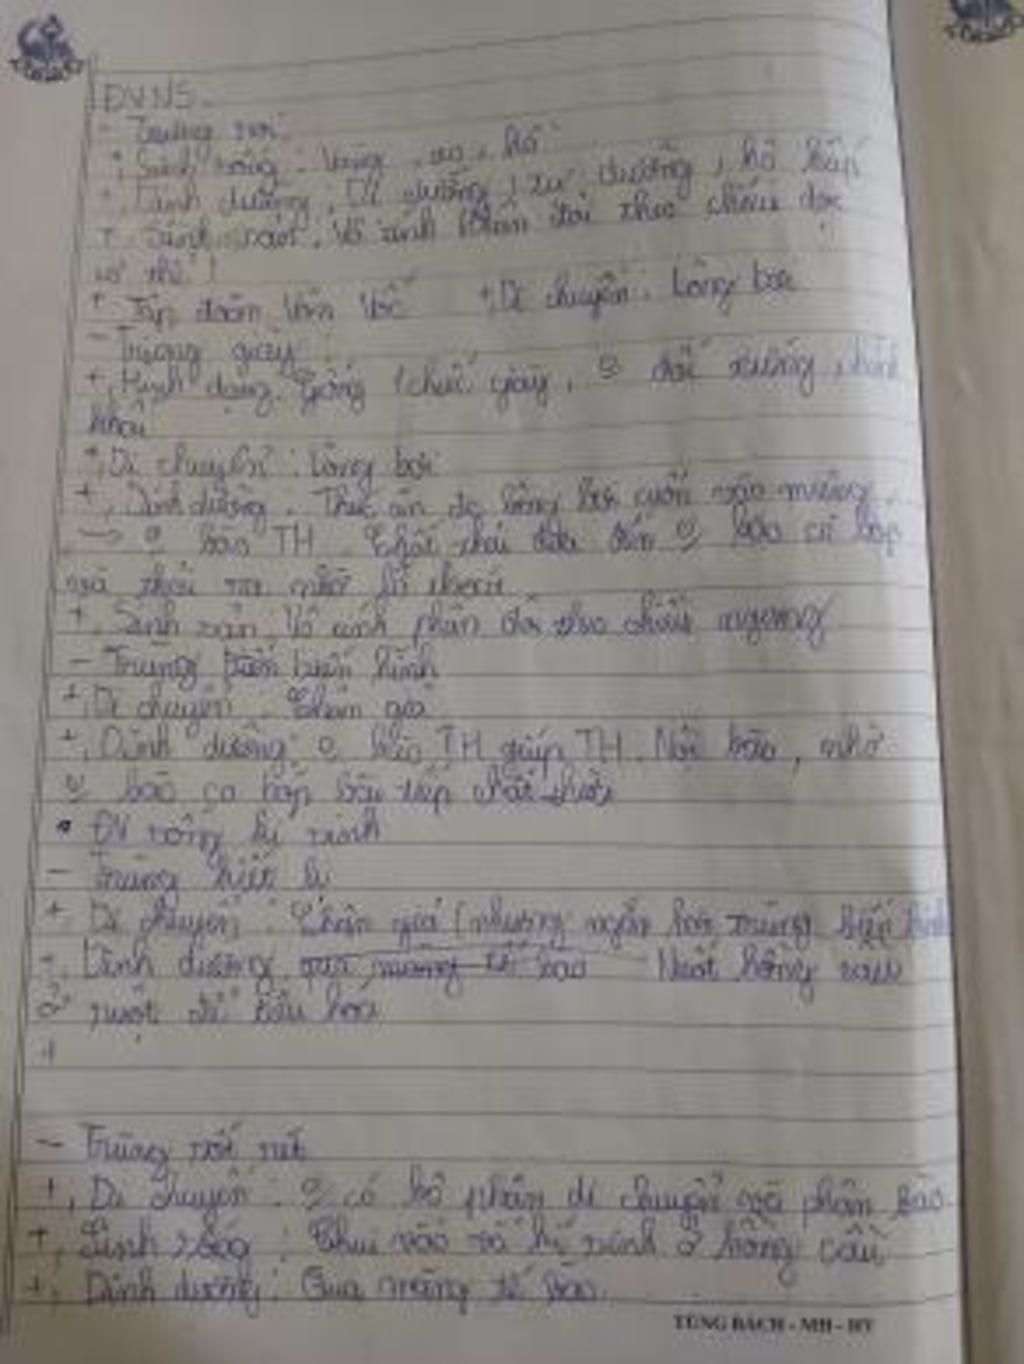 ĐVNS
- Trùng roi
+, Sinh sống: Vùng ao, hồ
+, Dinh dưỡng: Dị dưỡng, tự dưỡng, hô hấp
+, Sinh sản: Vô tính phân đôi theo chiều dọc
cơ thể
+ Tập đoàn Vôn Vốc +, Di chuyển: Lông bơi
- Trùng giày
+, Hình dạng: Giống chiếc giày, đối xứng, hình
khối
+, Di chuyển: Lông bơi
+, Dinh dưỡng: Thức ăn dc lông bơi cuốn vào miệng
-> bào TH. Chất thải đưa đến bào co bóp
và thải ra nhờ lỗ thoát
+, Sinh sản: Vô tính phân đôi theo chiều ngang
- Trùng biến hình
+, Di chuyển: Chân giả
+, Dinh dưỡng: bào TH giúp TH. Nội bào, nhờ
bào co bóp bài tiết chất thải
• ĐV sống kí sinh
- Trùng kiết lị
+ Di chuyển: Chân giả (nhưng ngắn hơn trùng biến hình
+, Dinh dưỡng: qua màng tế bào Nuốt hồng cầu
ở ruột để tiêu hoá
+
- Trùng sốt rét
+, Di chuyển: có bộ phận di chuyển và phân bào
+, Sinh sống: Chui vào và kí sinh ở hồng cầu
+, Dinh dưỡng: Qua màng tế bào
TÙNG BÁCH - MH - HY